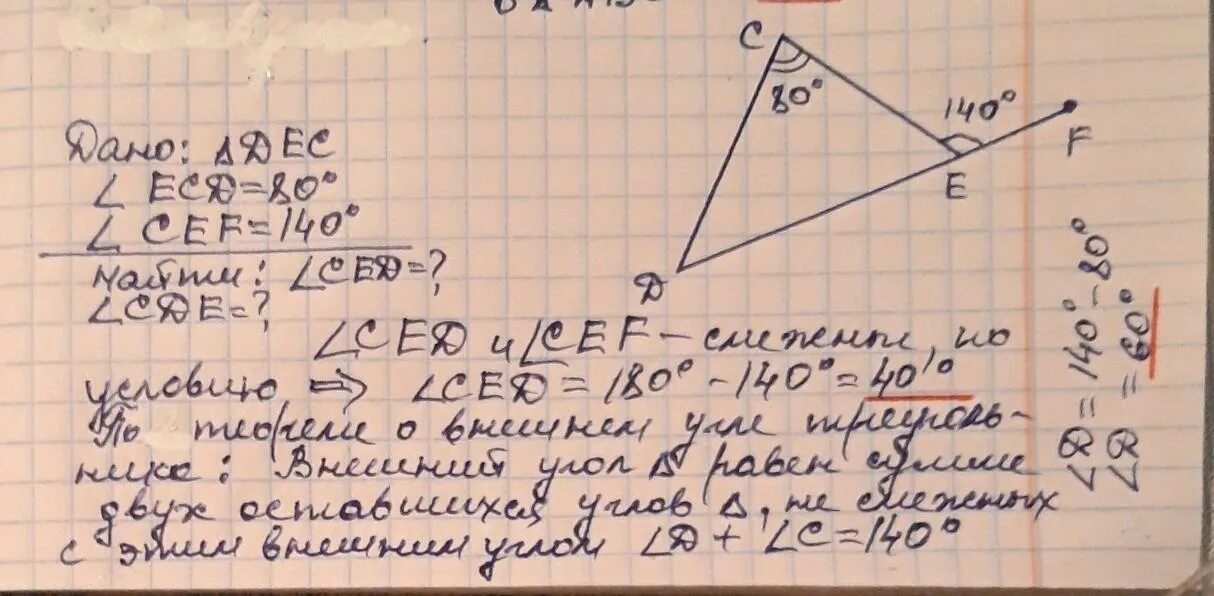 Дано: ΔDEC
∠ ECD=80°
∠ CEF=140°
Найти: ∠CED=?
∠CDE=?
C
80°
140°
E
F
D
∠CED и ∠CEF – смежные, по
условию ⇒ ∠CED = 180° - 140° = 40°
По теореме о внешнем угле треуголь-
ника: Внешний угол Δ равен сумме
двух оставшихся углов Δ, не смежных
с этим внешним углом ∠D + ∠C = 140°
∠D = 140° - 80°
∠D = 60°